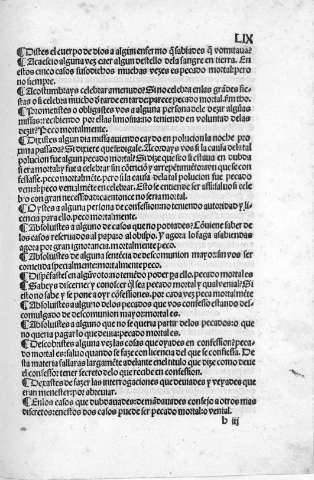 LIX
¶Distes el cuerpo de dios a algun enfermo q̃ sabiades q̃ vomitaua?
¶Acaescio alguna vez caer algun destello dela sangre en tierra. En
estos cinco casos susodichos muchas vezes es pecado mortal: pero
no siempre.
¶Acostumbays celebrar amenudo? Si no celebra en las grãdes fies-
tas o si celebra mucho d̃ tarde en tarde
¶Prometistes o obligastes vos a alguna persona de le dezir algũas
missas: recibiendo por ellas limosna: no teniendo en voluntad delas
dezir? Peco mortalmente.
¶Dixistes algun dia missa auiendo caydo en polucion la noche pro
xima passada? Si dixiere que si: digale. Acordays vos si la causa dela tal
polucion fue algun pecado mortal? Si dize que si: o si estaua en dubda
si era mortal: y fue a celebrar sin
fessasse. peco mortalmẽte. pero si la causa dela tal polucion fue pecado
venial: peco venialmẽte en celebrar. Esto se entiende
bro con gran necessidad: ca entonce no seria mortal.
¶Oystes a alguna persona de confession no teniendo autoridad y li-
cencia para ello. peco mortalmente.
¶Absoluistes a alguno de casos que no podiades? Cõuiene saber de
los casos reseruados al papa: o al obispo. Y agora lo haga a sabiendas
agora por gran ignorancia. mortalmẽte peco.
¶Absoluistes de alguna sentẽcia de descomunion mayor: sin vos ser
cometida specialmente: mortalmẽte peco.
¶Dispẽsastes en algũ voto: no teniẽdo poder pa ello. pecado mortal es
¶Sabeys discerner y conoscer q̃l sea pecado mortal y qual venial? Si
esto no sabe y se pone a oyr cõfessiones. por cada vez peca mortalmẽte
¶Absoluistes a alguno delos pecados que vos confesso estando des-
comulgado de descomunion mayor: mortal es.
¶Absoluistes a alguno que no se queria partir delos pecados: o que
no queria pagar lo que deuia: pecado mortal es.
¶Descobristes alguna vez las cosas que oyades en confession? peca-
do mortal es: saluo quando se faze con licencia del que se confiessa. De
sta materia fallaras largamẽte adelante en el titulo que dize como deue
el confessor tener secreto delo que recibe en confession.
¶Dexastes de fazer las interrogaciones que deuiades y veyades que
eran menester: por abreuiar.
¶En los casos que dubdauades: demãdauades consejo a otros mas
discretos: en estos dos casos puede ser pecado mortal: o venial.
b iij